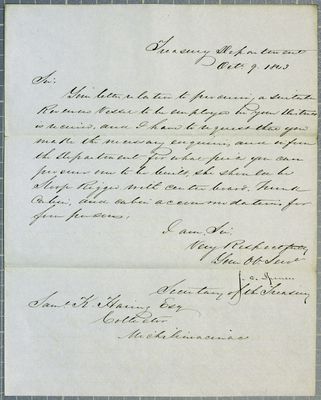 Treasury Department
Oct. 9. 1843
Sir:
Your letter relative to procuring a suitable
Revenue Vessel to be employed in your District
is received, and I have to request that you
make the necessary enquiries and inform
the Department for what price you can
procure one to be built, she should be
Sloop Rigged with center board, Trunk
Cabin, and cabin accommodations for
four persons.
I am, Sir:
Very Respectfully
Your Ob. Servt.
J. C. Spencer
Secretary of the Treasury
Saml. K. Haring Esq
Collector
Michilimacinac